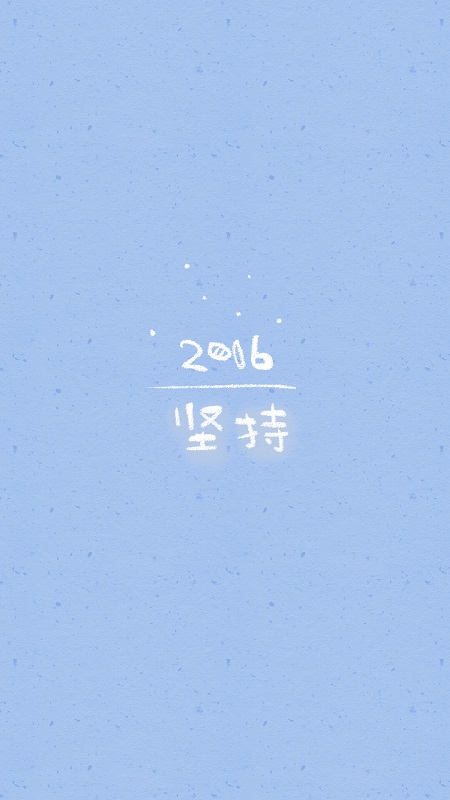 2016
坚持